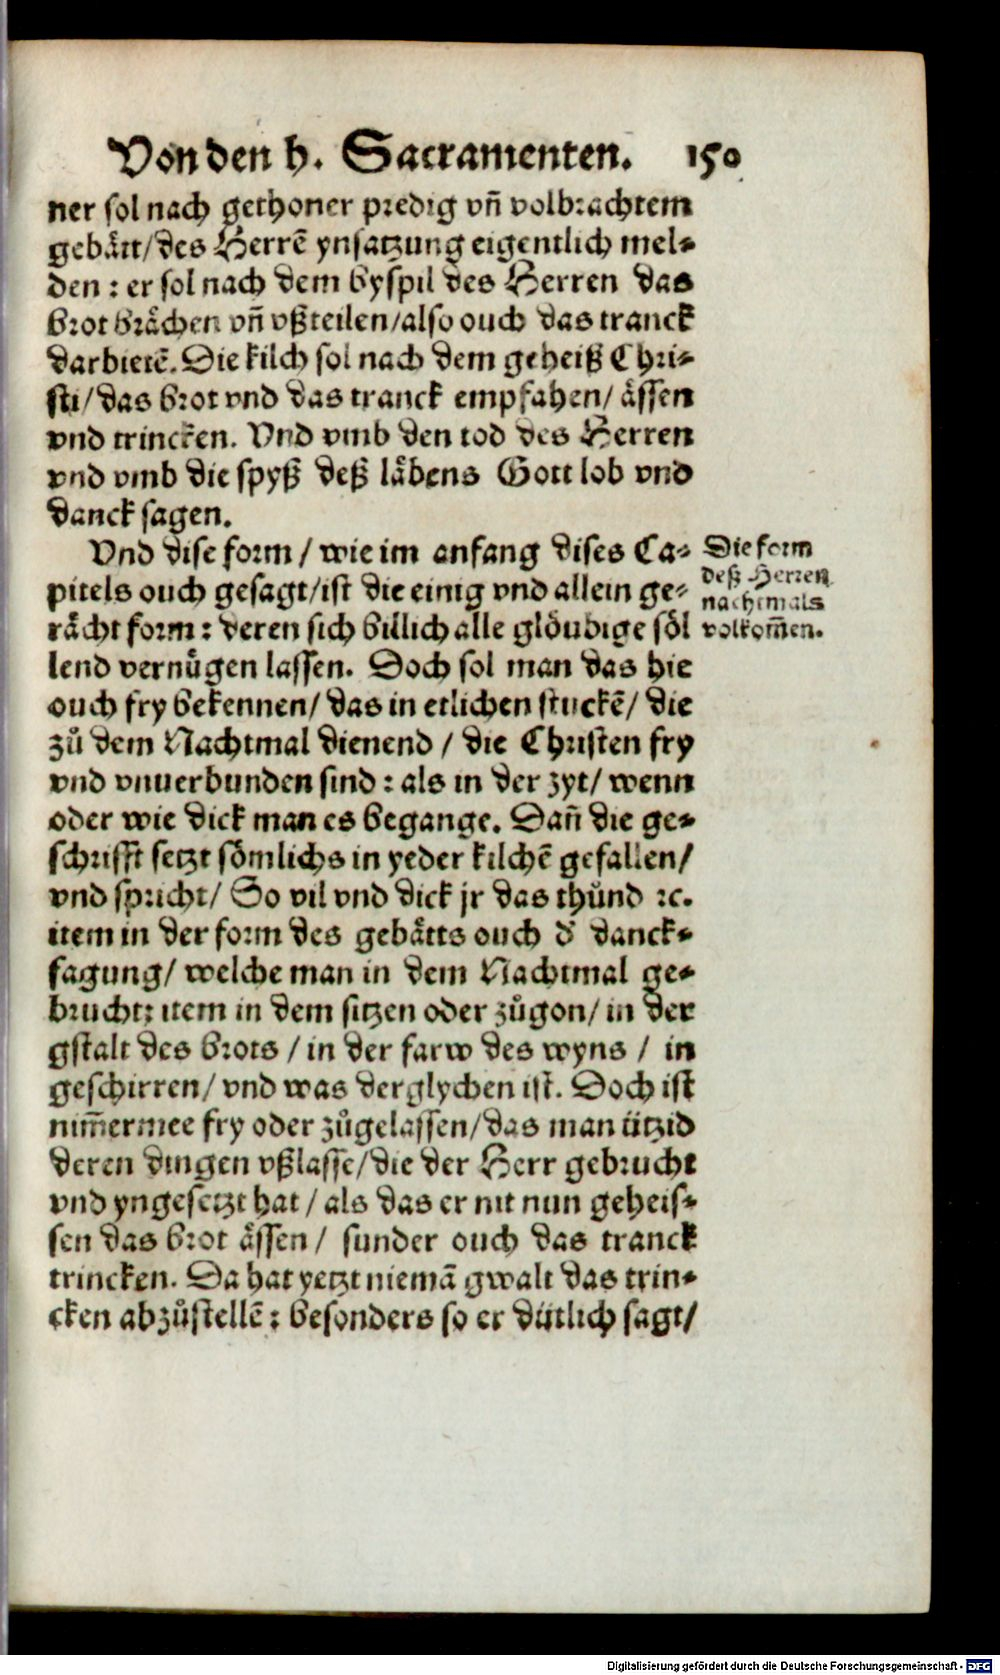 Von den h. Sacramenten. 150
ner sol nach gethoner predig vñ volbrachtem
gebaͤtt/des Herrē ynsatzung eigentlich mel⸗
den : er sol nach dem byspil des Herren das
brot braͤchen vñ vßteilen/also ouch das tranck
darbietē. Die kilch sol nach dem geheiß Chri⸗
sti/das brot vnd das tranck empfahen/ aͤssen
vnd trincken. Vnd vmb den tod des Herren
vnd vmb die spyß deß laͤbens Gott lob vnd
danck sagen.
Vnd dise form / wie im anfang dises Ca⸗
pitels ouch gesagt/ist die einig vnd allein ge⸗
raͤcht form : deren sich billich alle gloͤubige soͤl
lend vernuͤgen lassen. Doch sol man das hie
ouch fry bekennen/ das in etlichen stuckē/ die
zuͦ dem Nachtmal dienend / die Christen fry
vnd vnuerbunden sind : als in der zyt/ wenn
oder wie dick man es begange. Dañ die ge⸗
schrifft setzt soͤmlichs in yeder kilchē gefallen/
vnd spricht/ So vil vnd dick jr das thuͦnd ꝛc.
item in der form des gebaͤtts ouch d' danck⸗
sagung/ welche man in dem Nachtmal ge⸗
brucht: item in dem sitzen oder zuͦgon/ in der
gstalt des brots / in der farw des wyns / in
geschirren/ vnd was derglychen ist. Doch ist
nim̄ermee fry oder zuͦgelassen/das man ützid
deren dingen vßlasse/die der Herr gebrucht
vnd yngesetzt hat / als das er nit nun geheis⸗
sen das brot aͤssen / sunder ouch das tranck
trincken. Da hat yetzt niemā gwalt das trin⸗
cken abzuͦstellē : besonders so er dütlich sagt/
Die form
deß Herren
nachtmals
volkom̄en.
Digitalisierung gefördert durch die Deutsche Forschungsgemeinschaft - DFG